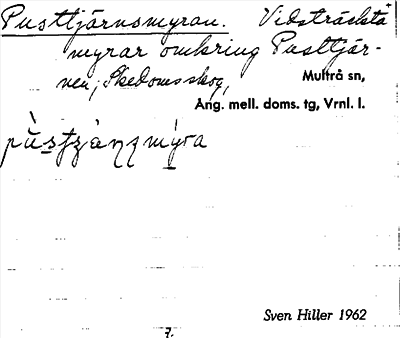 Pusttjärnsmyran. Vidsträckta
myrar omkring Pusttjär-
nen, Skedoms skog,
Multrå sn,
Ång. mell. doms. tg, Vrnl. l.
Sven Hiller 1962
7.